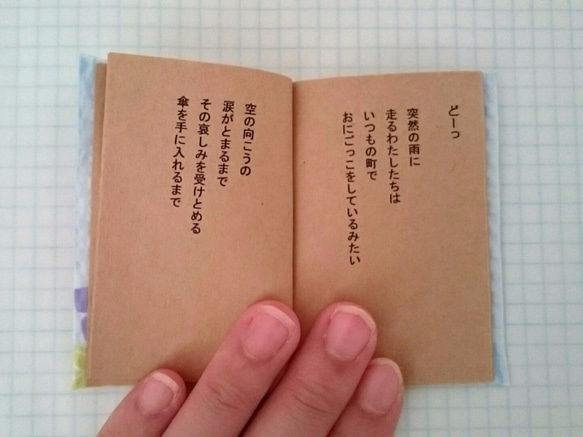 どーっ
突然の雨に
走るわたしたちは
いつもの町で
おにごっこをしているみたい
空の向こうの
涙がとまるまで
その哀しみを受けとめる
傘を手に入れるまで